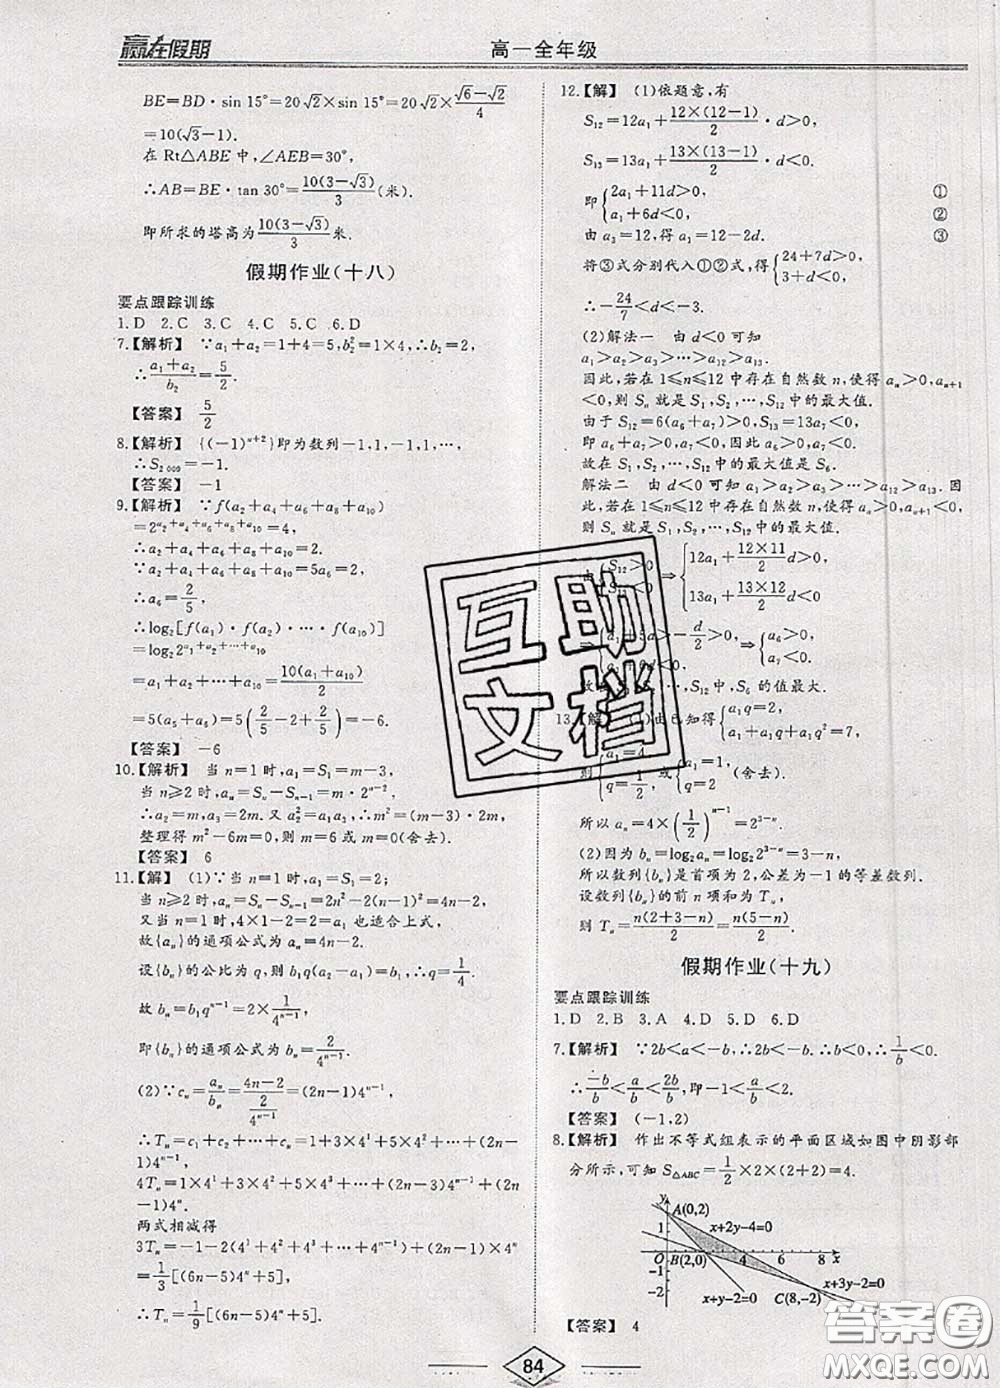 赢在假期
高一全年级
BE=BD·sin 15°=20√2×sin 15°=20√2×(√6-√2)/4
=10(√3-1).
在 Rt△ABE 中,∠AEB=30°,
∴AB=BE·tan 30°=10(3-√3)/3(米).
即所求的塔高为10(3-√3)/3米.
假期作业(十八)
要点跟踪训练
1.D 2.C 3.C 4.C 5.C 6.D
7.【解析】 ∵a₁+a₂=1+4=5,b₂²=1×4,∴b₂=2,
∴(a₁+a₂)/b₂=5/2.
【答案】 5/2
8.【解析】 {(-1)ⁿ⁺²}即为数列-1,1,-1,1,…,
∴S₂₀₀₉=-1.
【答案】 -1
9.【解析】 ∵f(a₂+a₄+a₆+a₈+a₁₀)
=2^(a₂+a₄+a₆+a₈+a₁₀)=4,
∴a₂+a₄+a₆+a₈+a₁₀=2.
∵a₂+a₄+a₆+a₈+a₁₀=5a₆=2,
∴a₆=2/5,
∴log₂[f(a₁)·f(a₂)·…·f(a₁₀)]
=log₂2^(a₁+a₂+…+a₁₀)
=a₁+a₂+…+a₁₀=10(a₁+a₁₀)/2
=5(a₅+a₆)=5(2/5-2+2/5)=-6.
【答案】 -6
10.【解析】 当 n=1 时,a₁=S₁=m-3,
当 n≥2 时,aₙ=Sₙ-Sₙ₋₁=m·2ⁿ⁻²,
∴a₂=m,a₃=2m.又 a₂²=a₁a₃,∴m²=(m-3)·2m,
整理得 m²-6m=0,则 m=6 或 m=0(舍去).
【答案】 6
11.【解】 (1)∵当 n=1 时,a₁=S₁=2;
当 n≥2 时,aₙ=Sₙ-Sₙ₋₁=2n²-2(n-1)²=4n-2,
又当 n=1 时,4×1-2=2=a₁ 也适合上式,
故{aₙ}的通项公式为 aₙ=4n-2.
设{bₙ}的公比为 q,则 b₁q(a₂-a₁)=b₁,∴q=1/4,
故 bₙ=b₁qⁿ⁻¹=2×1/4ⁿ⁻¹,
即{bₙ}的通项公式为 bₙ=2/4ⁿ⁻¹.
(2)∵cₙ=aₙ/bₙ=(4n-2)/(2/4ⁿ⁻¹)=(2n-1)4ⁿ⁻¹,
∴Tₙ=c₁+c₂+…+cₙ=1+3×4¹+5×4²+…+(2n-
1)4ⁿ⁻¹,
4Tₙ=1×4¹+3×4²+5×4³+…+(2n-3)4ⁿ⁻¹+(2n
-1)4ⁿ.
两式相减得
3Tₙ=-1-2(4¹+4²+4³+…+4ⁿ⁻¹)+(2n-1)×4ⁿ=
1/3[(6n-5)4ⁿ+5],
∴Tₙ=1/9[(6n-5)4ⁿ+5].
12.【解】 (1)依题意,有
S₁₂=12a₁+12×(12-1)/2·d>0,
S₁₃=13a₁+13×(13-1)/2·d<0,
即{2a₁+11d>0, ①
a₁+6d<0, ②
由 a₃=12,得 a₁=12-2d. ③
将③式分别代入①②式,得{24+7d>0,
3+d<0,
∴-24/7<d<-3.
(2)解法一 由 d<0 可知
a₁>a₂>a₃>…>a₁₂>a₁₃
因此,若在 1≤n≤12 中存在自然数 n,使得 aₙ>0,aₙ₊₁
<0,则 Sₙ 就是 S₁,S₂,…,S₁₂中的最大值.
由于 S₁₂=6(a₆+a₇)>0,S₁₃=13a₇<0,
即 a₆+a₇>0,a₇<0,因此 a₆>0,a₇<0,
故在 S₁,S₂,…,S₁₂中的最大值是 S₆.
解法二 由 d<0 可知 a₁>a₂>a₃>…>a₁₂>a₁₃.因
此,若在 1≤n≤12 中存在自然数 n,使得 aₙ>0,aₙ₊₁<0,
则 Sₙ 就是 S₁,S₂,…,S₁₂中的最大值.
由{S₁₂>0 ⇒{12a₁+(12×11)/2 d>0,
S₁₃<0 13a₁+(13×12)/2 d<0
⇒{a₁+5d>-d/2>0, ⇒{a₆>0,
a₁+6d<0 a₇<0.
故在 S₁,S₂,…,S₁₂中,S₆ 的值最大.
13.【解】 (1)由已知得{a₁q=2,
a₁+a₁q+a₁q²=7,
则{a₁=4, q=1/2 或{a₁=1, q=2 (舍去).
所以 aₙ=4×(1/2)ⁿ⁻¹=2³⁻ⁿ.
(2)因为 bₙ=log₂aₙ=log₂2³⁻ⁿ=3-n,
所以数列{bₙ}是首项为 2,公差为-1 的等差数列.
设数列{bₙ}的前 n 项和为 Tₙ,
则 Tₙ=n(2+3-n)/2=n(5-n)/2.
假期作业(十九)
要点跟踪训练
1.D 2.B 3.A 4.D 5.D 6.D
7.【解析】 ∵2b<a<-b,∴2b<-b,∴b<0,∴1/b<0.
∴-b/b<a/b<2b/b,即-1<a/b<2.
【答案】 (-1,2)
8.【解析】 作出不等式组表示的平面区域如图中阴影部
分所示,可知 S△ABC=1/2×2×(2+2)=4.
y
A(0,2)
x+2y-4=0
1
O B(2,0) 4 6 8 x
-1
-2
x+3y-2=0
x+y-2=0 C(8,-2)
【答案】 4
84
互助
文档
答案圈
MXQE.COM